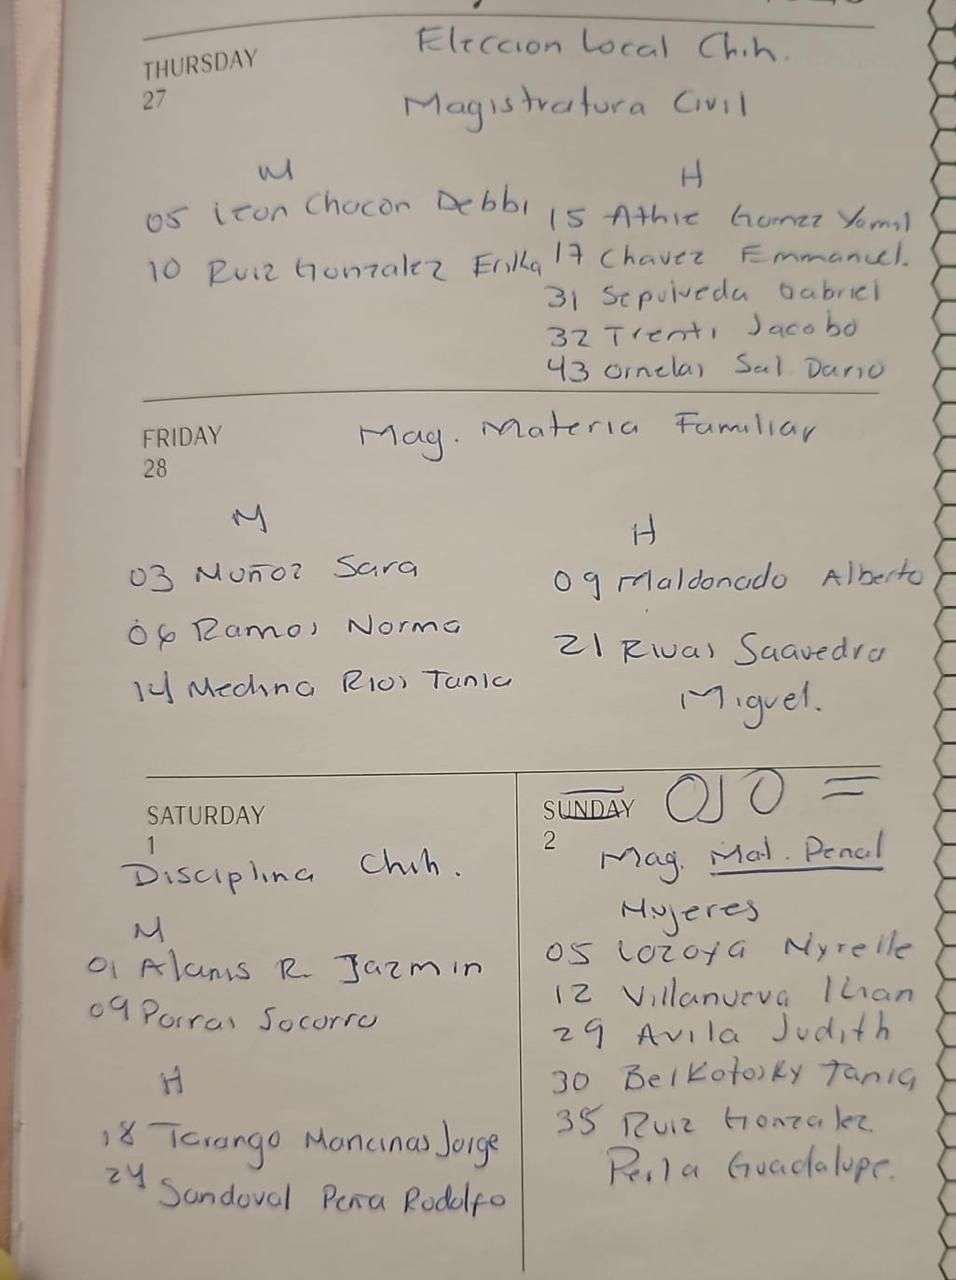 THURSDAY
27
Eleccion Local Chih.
Magistratura Civil
M
05 Icon Chacon Debbi
10 Ruiz Gonzalez Erika
H
15 Athie Gomez Yamil
17 Chavez Emmanuel.
31 Sepulveda Gabriel
32 Trenti Jacobo
43 Ornelas Sal Dario
FRIDAY
28
Mag. Materia Familiar
M
03 Muñoz Sara
06 Ramos Norma
14 Medina Rios Tania
H
09 Maldonado Alberto
21 Rivas Saavedra
Miguel.
SATURDAY
1
Disciplina Chih.
M
01 Alanis R. Jazmin
09 Porras Socorro
H
18 Tarango Mancinas Jorge
24 Sandoval Peña Rodolfo
SUNDAY
2
OJO =
Mag. Mat. Penal
Mujeres
05 Lozoya Myrelle
12 Villanueva
29 Avila Judith
30 Belkotosky Tania
35 Ruiz Gonzalez
Perla Guadalupe.